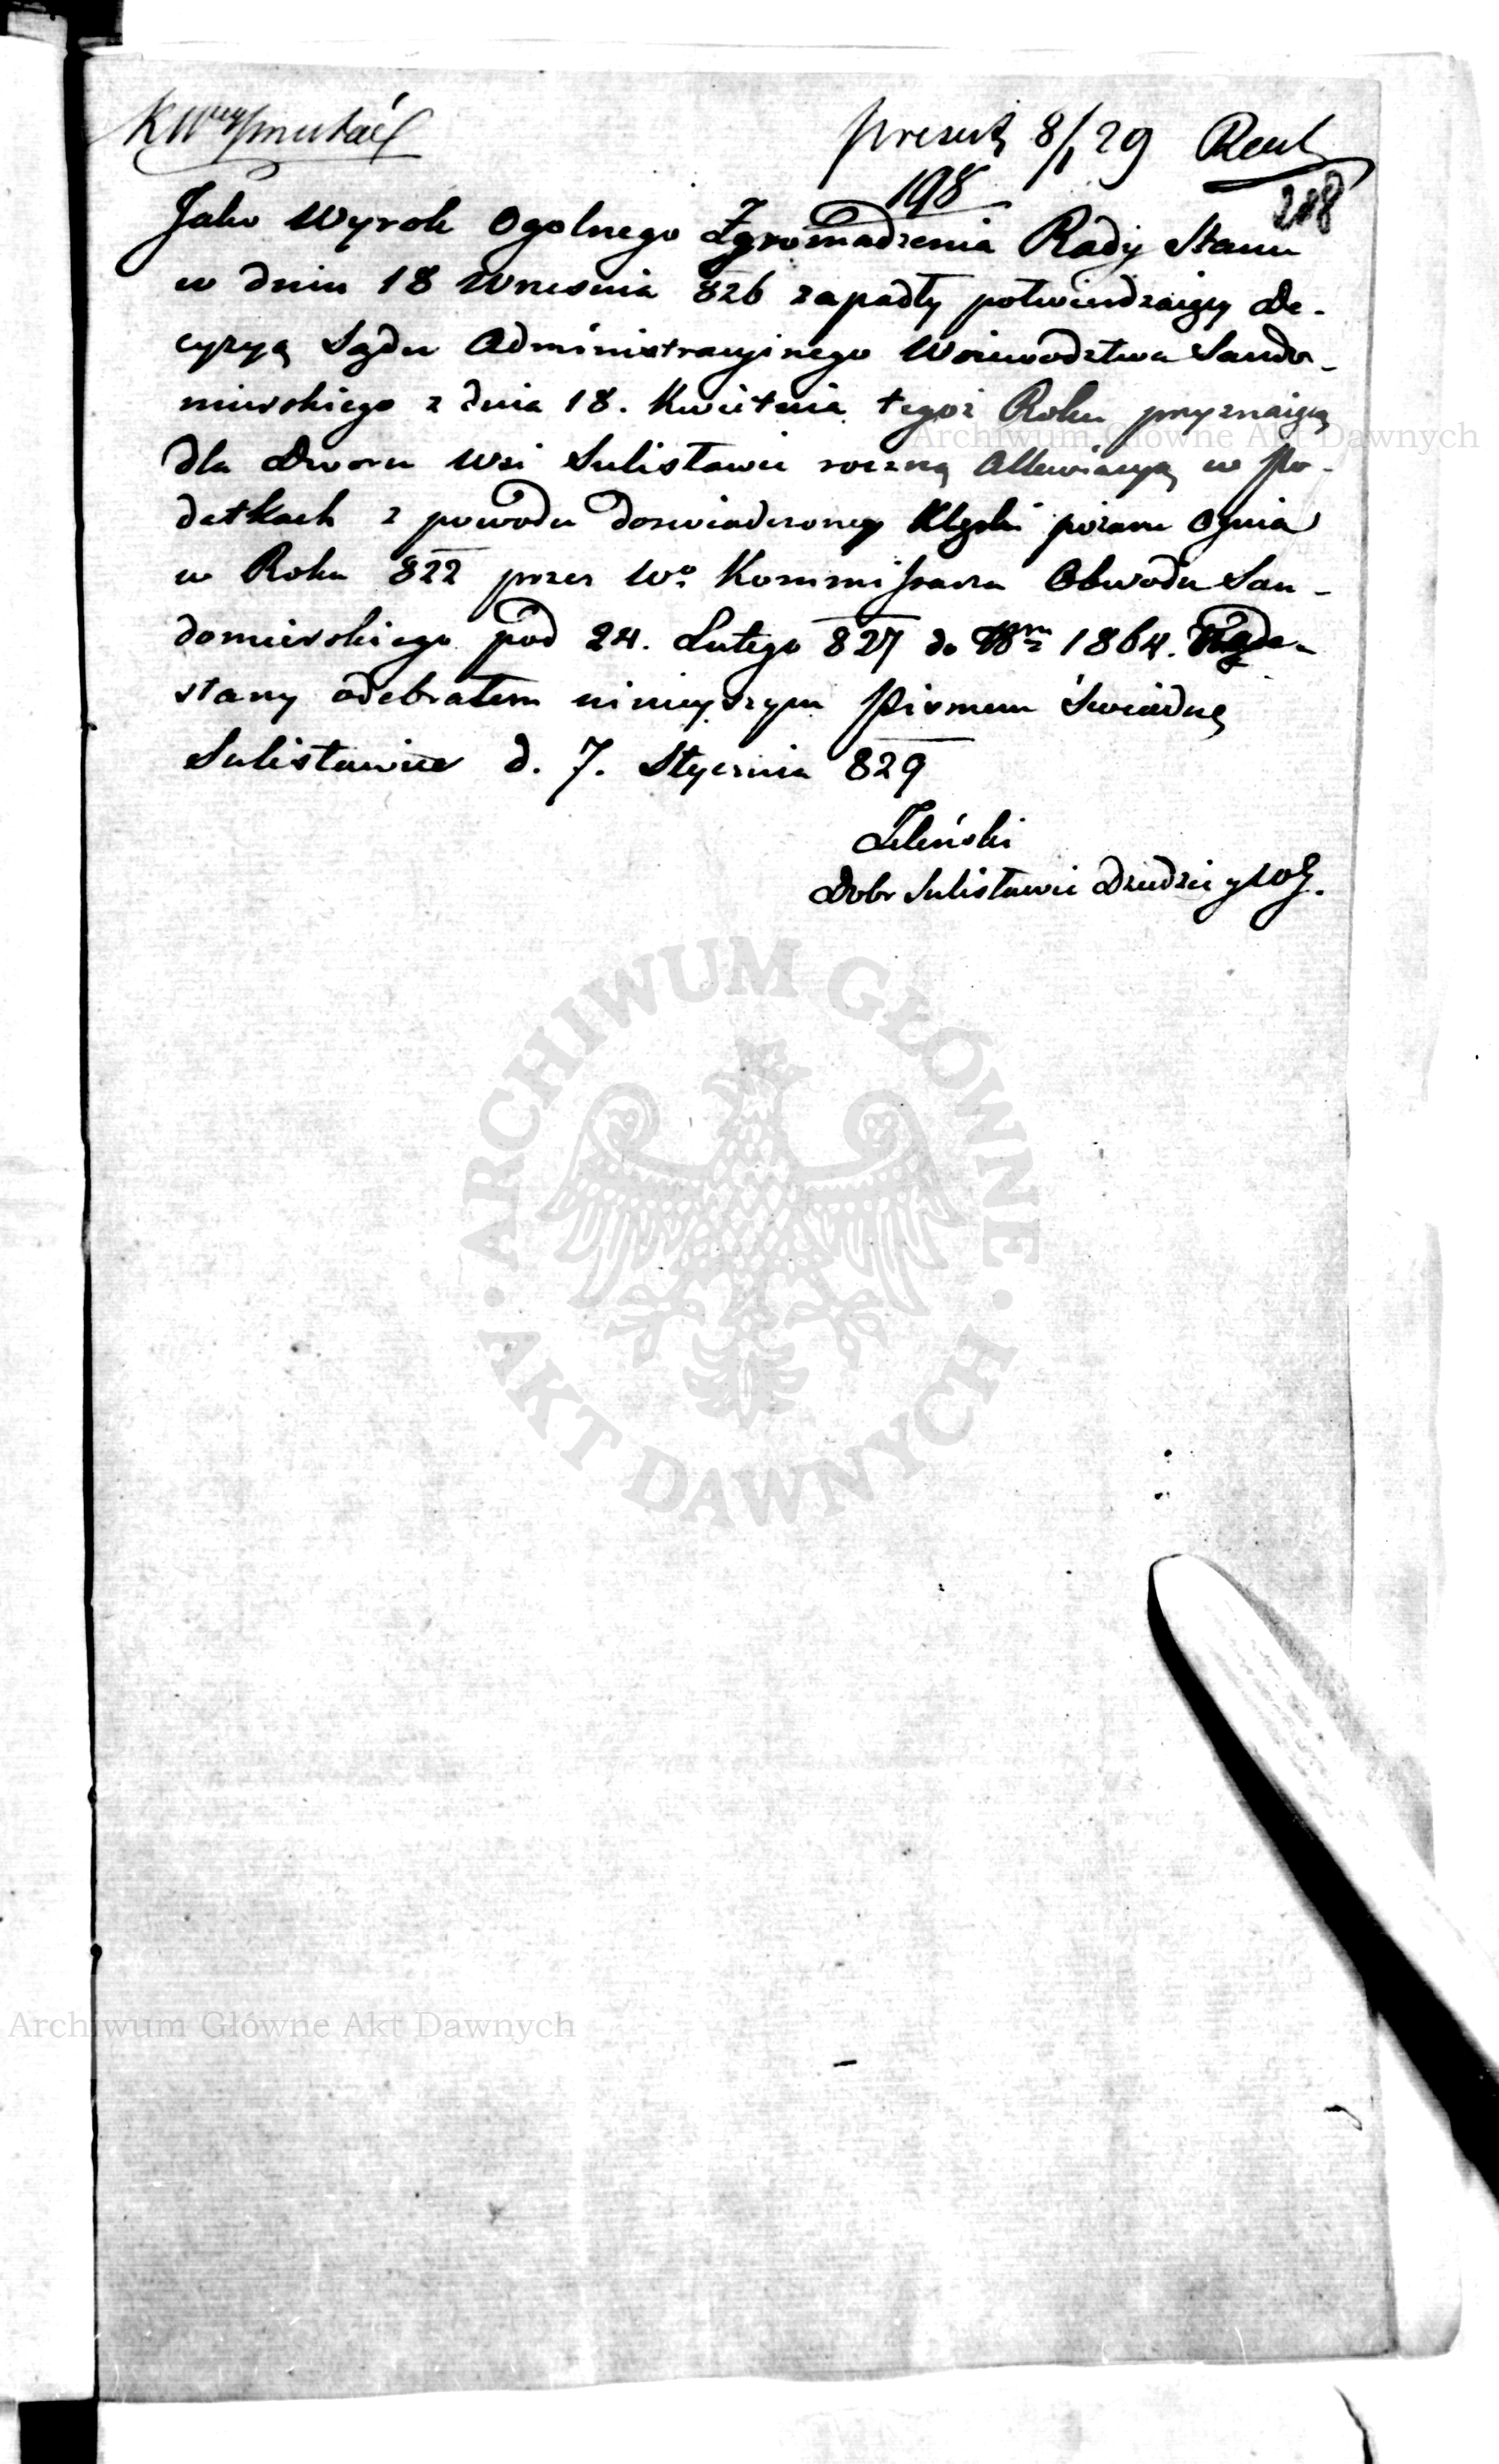 present 8/1 29
198
208
Jako Wyrok Ogolnego Zgromadzenia Rady Stanu
w dniu 18 Września 826 zapadły potwierdzaiący De-
cyzyą Sądu Administracyinego Woiewodztwa Sando-
mirskiego z dnia 18. Kwietnia tegoż Roku przyznaiącą
Archiwum Główne Akt Dawnych
dla Dworu Wsi Sulisławic roczną Allewiacyą w Po-
datkach z powodu doswiadczoney Klęski pożaru Ognia
w Roku 822 przez Wo Kommissarza Obwodu San-
domierskiego pod 24. Lutego 827 do 1864.
słany odebrałem ninieyszym Pismem świadczę
Sulisławice d. 7. Stycznia 829
Zeleński
Dobr Sulisławic Dziedzic
ARCHIWUM GŁÓWNE
AKT DAWNYCH
Archiwum Główne Akt Dawnych